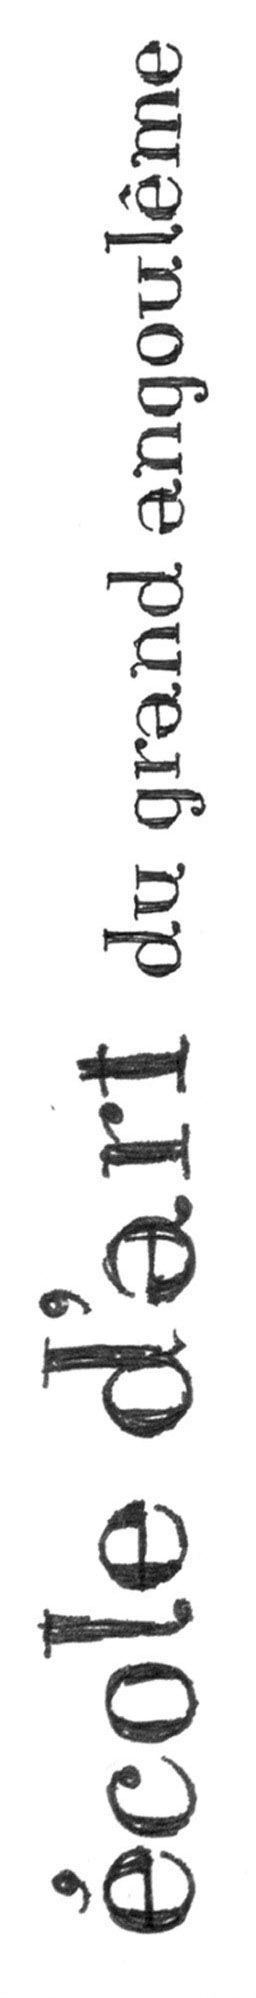 école d'art du grand angoulême